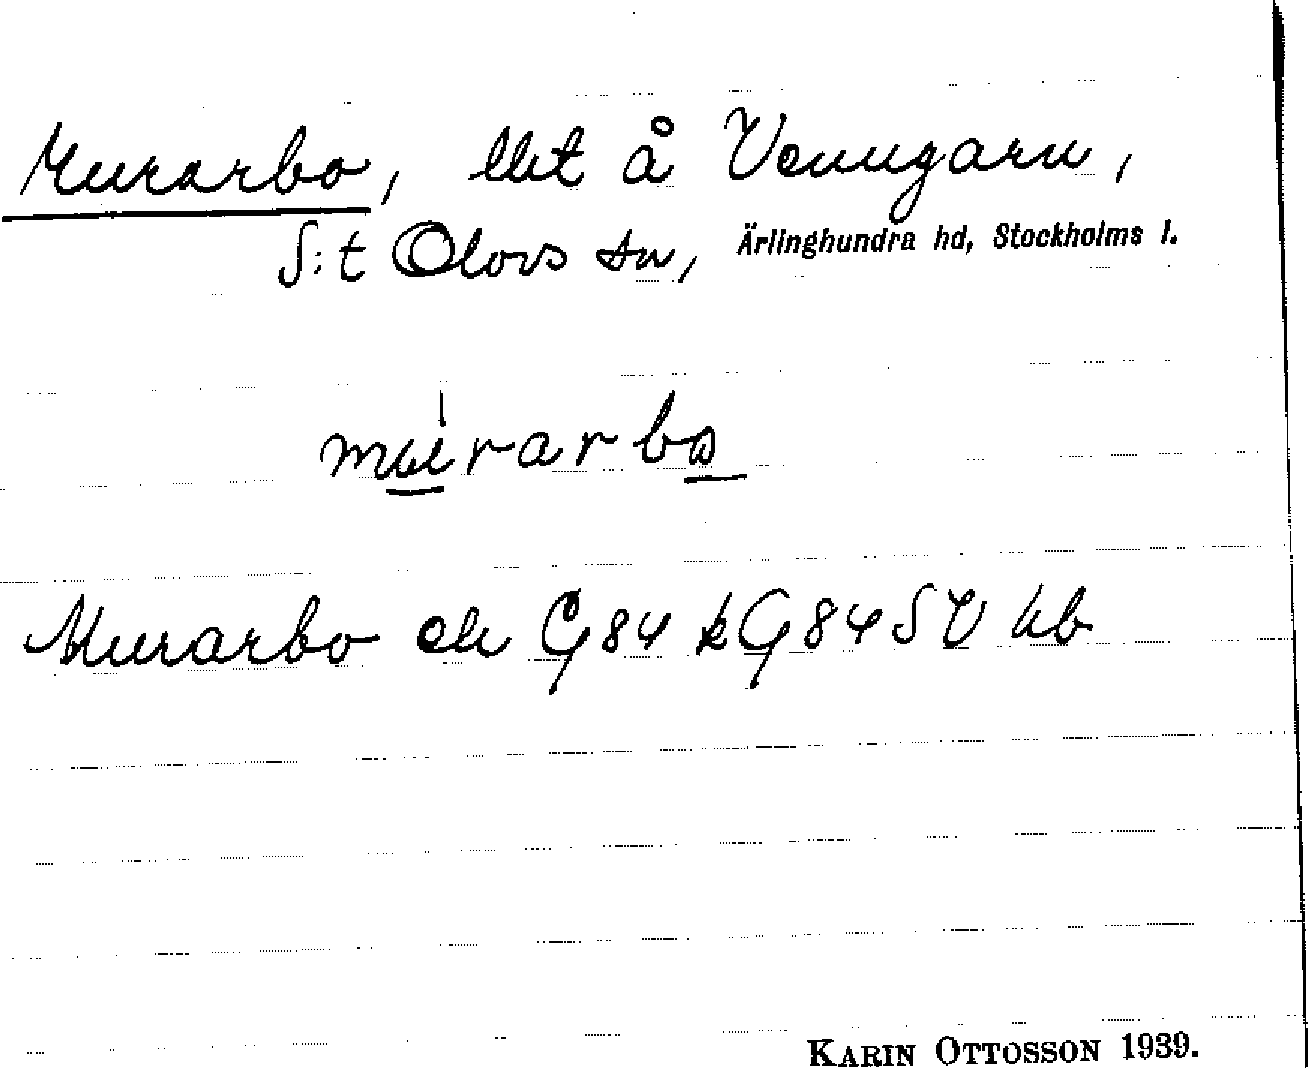 Murarbo, llet å Venngarn,
S:t Olovs sn, Ärlinghundra hd, Stockholms l.
múrarbo
Murarbo ek G 84 k G 84 SV hb
KARIN OTTOSSON 1939.